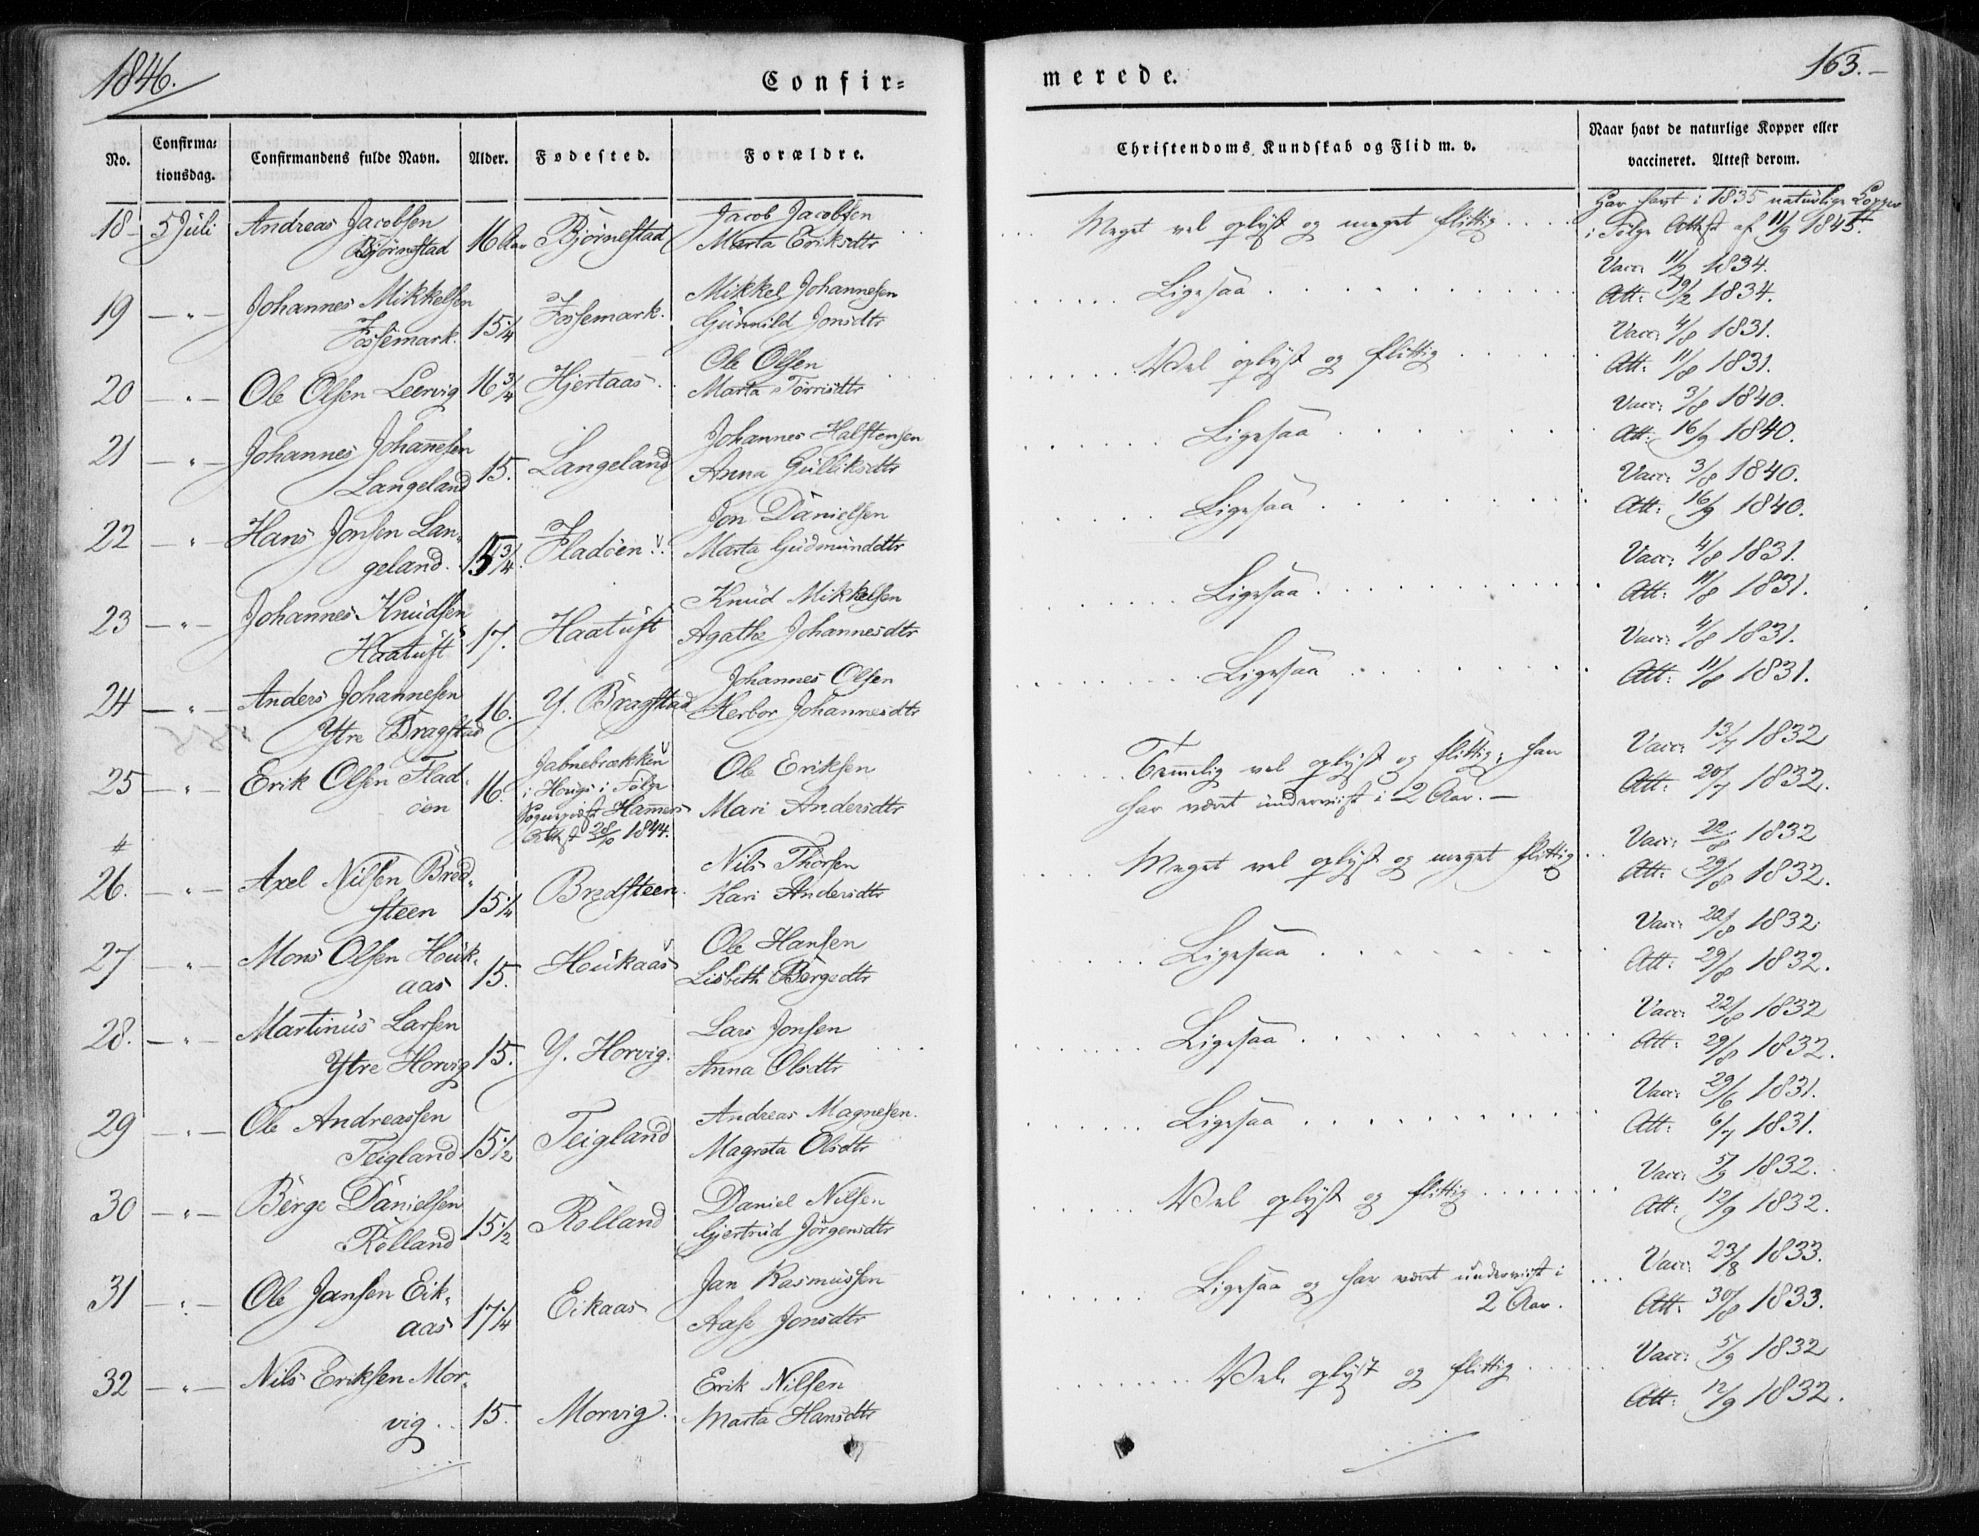 1846.
Confir=
merede.
163.-
No.
Confirma=
tionsdag.
Confirmandens fulde Navn.
Alder.
Fødested.
Forældre.
Christendoms Kundskab og Flid m. v.
Naar havt de naturlige Kopper eller
vaccineret. Attest derom.
18 - 5 Juli Andreas Jacobsen
Bjørnestad 16 Aar Bjørnestad
Jacob Jacobsen
Marta Eriksdtr
Meget vel oplyst og meget flittig
Har havt i 1835 naturlige Kopper
i Følge Attest af 11/9 1845.
19 - " - Johannes Mikkelsen
Fossemark. 15 1/4 Fossemark.
Mikkel Johannesen
Gunnild Jonsdtr
Ligesaa
Vacc. 11/2 1834.
Att: 19/2 1834.
20 - " - Ole Olsen Leervig 16 3/4 Hjertaas
Ole Olsen
Marta Torrisdtr
Vel oplyst og flittig
Vacc: 4/8 1831.
Att: 11/8 1831.
21 - " - Johannes Johannesen
Langeland 15. Langeland
Johannes Halstensen
Anna Gulliksdtr
Ligesaa
Vacc: 3/8 1840.
Att: 16/9 1840.
22 - " - Hans Jonsen Lan-
geland. 15 3/4. Fladøen
Jon Danielsen
Marta Gudmunddtr
Ligesaa
Vacc: 3/8 1840.
Att: 16/9 1840.
23 - " - Johannes Knudsen
Haatuft 17. Haatuft
Knud Mikkelsen
Agathe Johannesdtr
Ligesaa
Vacc: 4/8 1831.
Att: 11/8 1831.
24 - " - Anders Johannesen
Ytre Bragstad 16. Y. Bragstad
Johannes Olsen
Herbor Johannesdtr
Ligesaa
Vacc: 4/8 1831.
Att: 11/8 1831.
25 - " - Erik Olsen Flad-
øen 16.
i Houge i Følge
Hammers
Attest 28/10 1844.
Ole Eriksen
Mari Andersdtr
Temmelig vel oplyst og flittig; han
har været underviist i 2 Aar. -
Vacc: 13/7 1832
Att: 20/7 1832.
26. - " - Axel Nilsen Bred-
steen 15 1/4 Bredsteen
Nils Thorsen
Kari Andersdtr
Meget vel oplyst og meget flittig
Vacc: 22/8 1832
Att: 29/8 1832.
27 - " - Mons Olsen Houk-
aas 15. Houkaas
Ole Hansen
Lisbeth Børgedtr
Ligesaa
Vacc: 22/8 1832
Att: 29/8 1832.
28. - " - Martinus Larsen
Ytre Horvig 15. Y. Horvig.
Lars Jonsen
Anna Olsdtr
Ligesaa
Vacc: 22/8 1832
Att: 29/8 1832.
29 - " - Ole Andreassen
Teigland 15 1/2 Teigland
Andreas Magnesen.
Magreta Olsdtr
Ligesaa
Vacc: 29/6 1831.
Att: 6/7 1831.
30 - " - Børge Danielsen
Rolland 15 1/2 Rolland
Daniel Nilsen
Gjertrud Jørgensdtr
Vel oplyst og flittig
Vacc: 5/9 1832.
Att: 12/9 1832.
31 - " - Ole Jansen Eik-
aas 17 1/4 Eikaas
Jan Rasmussen
Aase Jonsdtr
Ligesaa og har været underviist i
2 Aar.
Vacc: 23/8 1833.
Att: 30/8 1833.
32 - " - Nils Eriksen Mor-
vig. 15. Morvig.
Erik Nilsen
Marta Hansdtr
Vel oplyst og flittig
Vacc: 5/9 1832
Att: 12/9 1832.